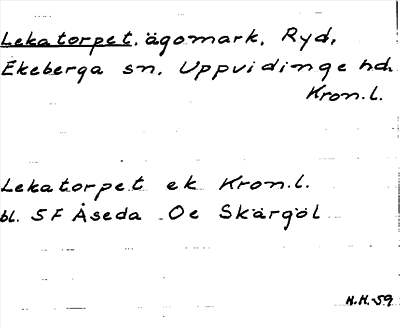 Lekatorpet, ägomark, Ryd,
Ekeberga sn. Uppvidinge hd.
Kron.l.
Lekatorpet ek Kron.l.
bl. 5F Åseda Oe Skärgöl
H.H.-59